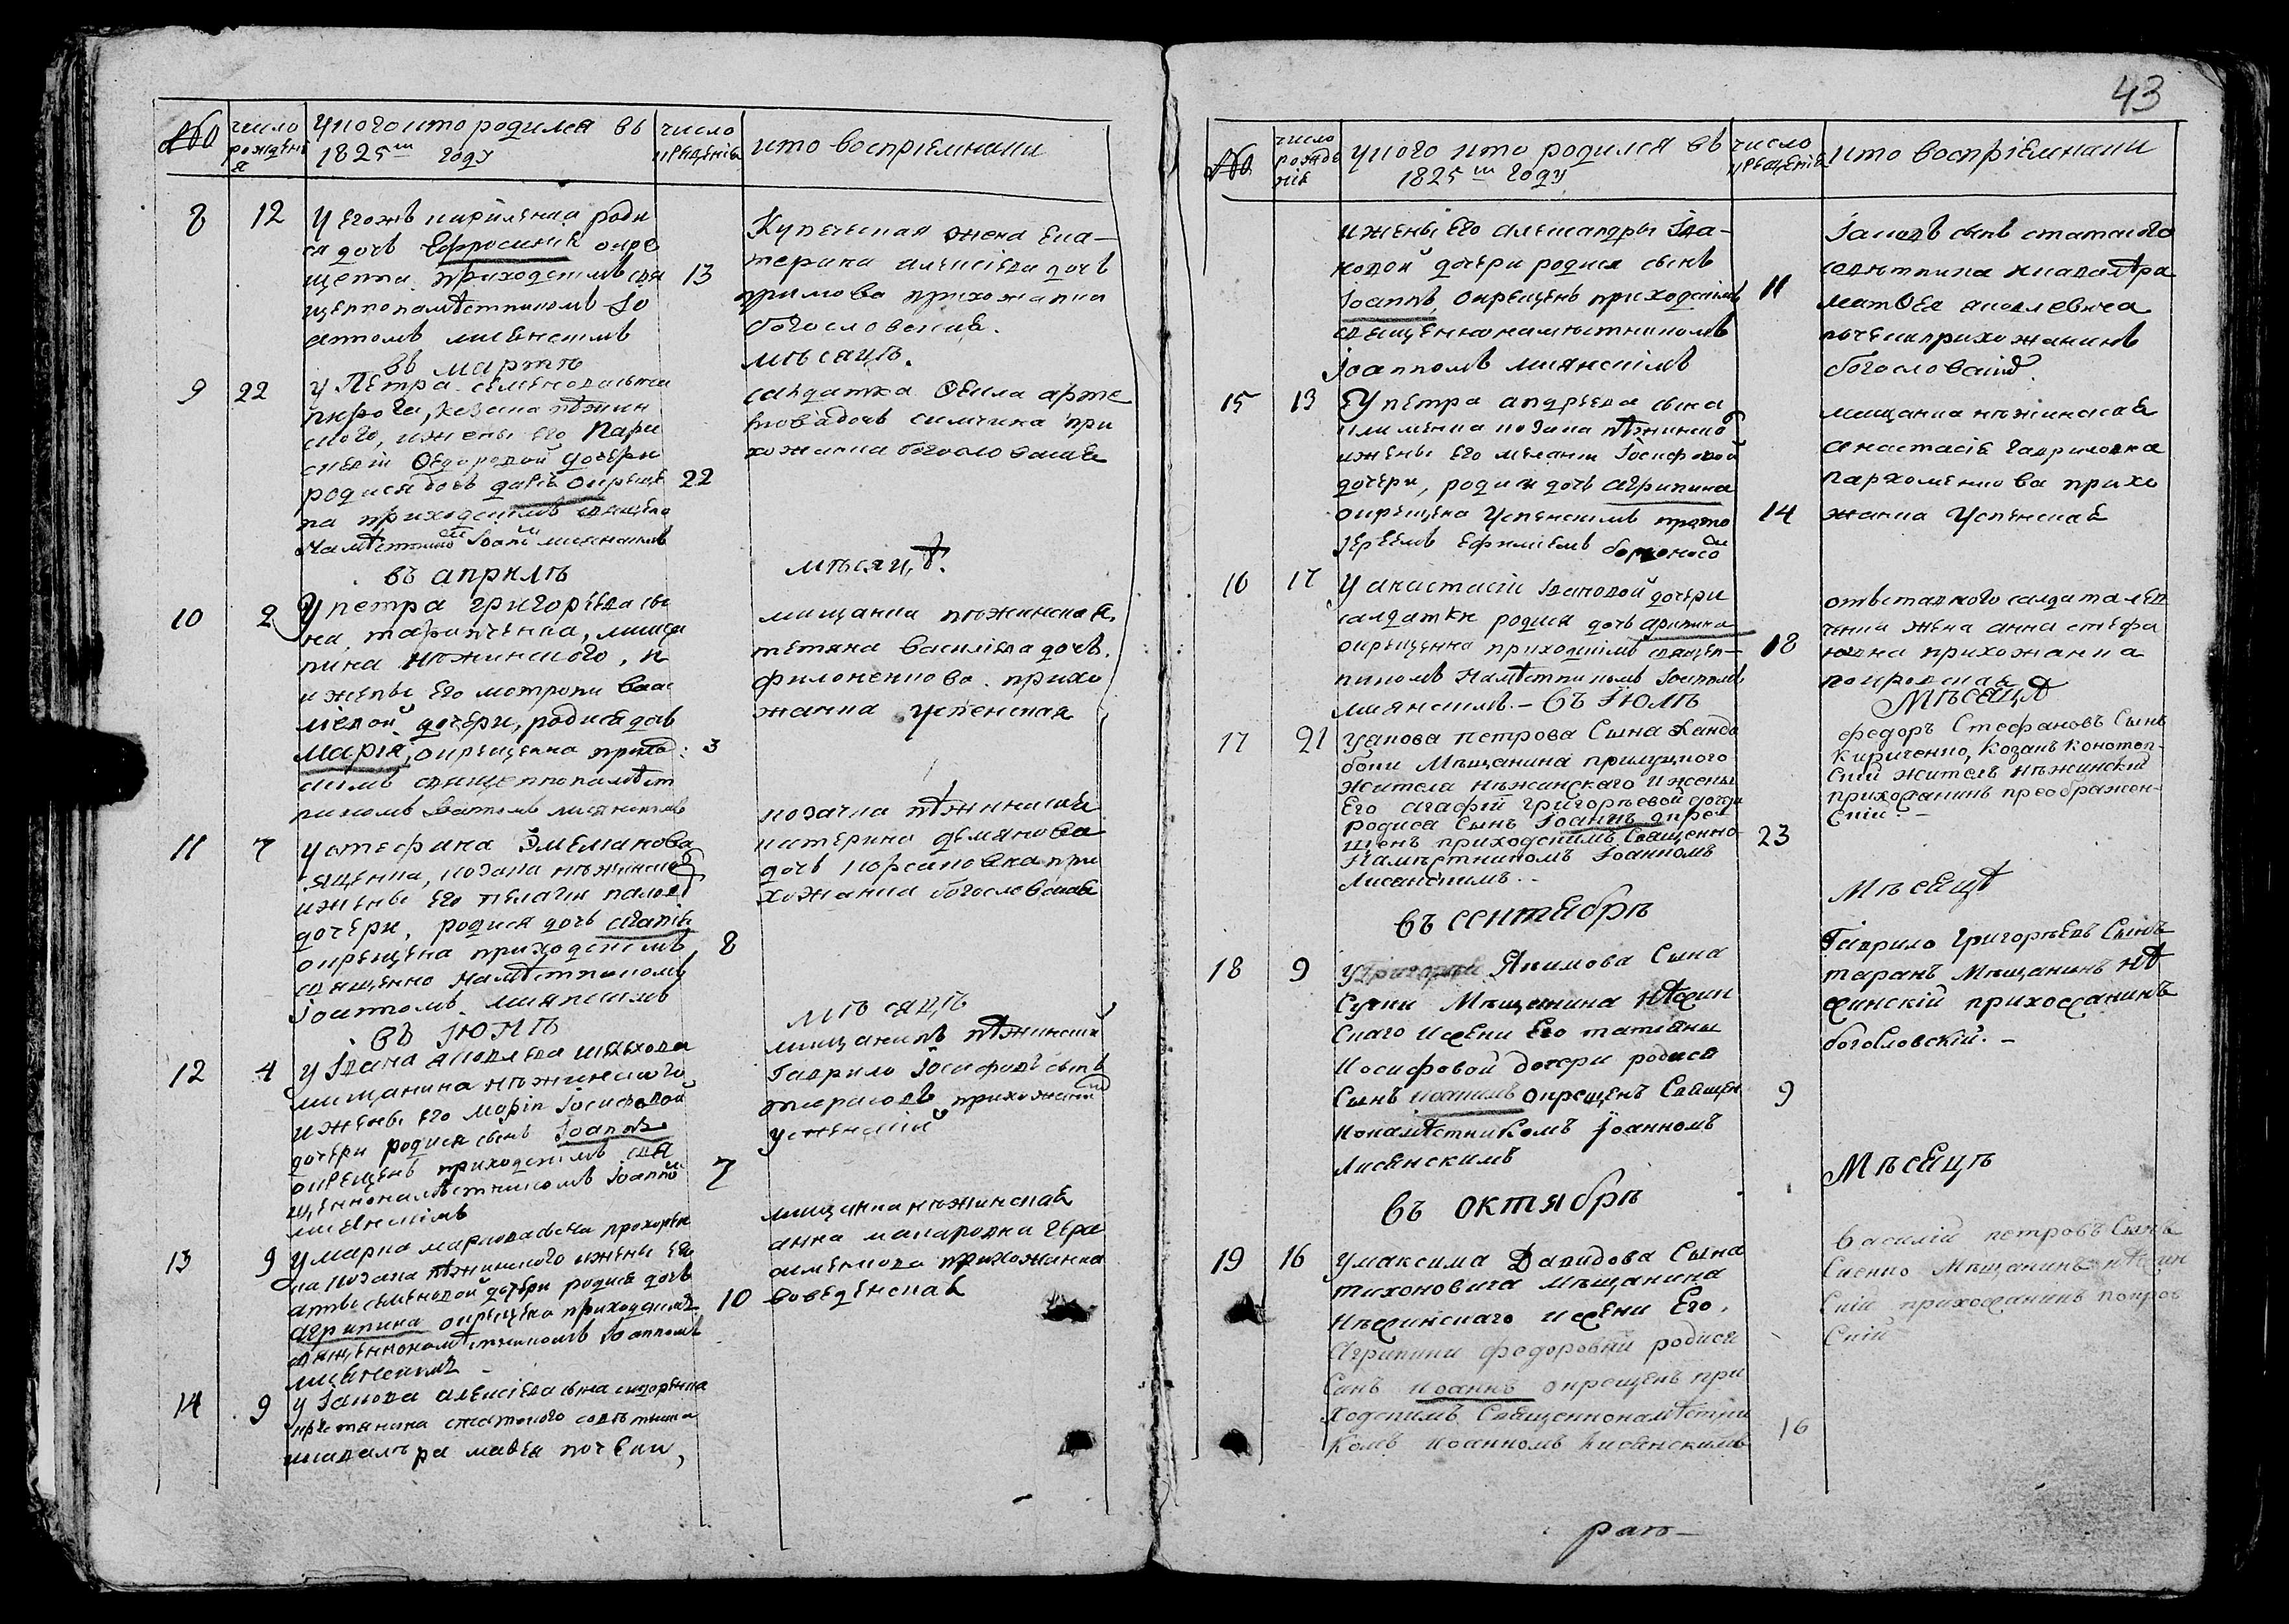 43
№
число рожденія
у кого кто родился въ 1825м году
число крещенія
кто воспріемники
8 12
У Егожъ кириленка роди
ся дочь Ефросинія окре
щенна приходскимъ свя 13
щеннонамѣстникомъ Іо
анномъ лисянскимъ
Купеческая жена Ека-
терина алексіева дочь
прихожанка
богословская.
въ мартѣ мѣсяцѣ.
9 22
У Петра семенова сына
пирога, козака нѣжин
ского, и жены его Парас
кевіи Ѳедоровой дочери
родися дочь дарія окреще 22
на приходскимъ священо
намѣстником Іоаном лисянскимъ
салдатка Ѳекла арте
мова дочь симчина при
хожанка богословская
въ апрѣлѣ мѣсяцѣ.
10 2
У петра григоріева сы
на, тарапченка, мища
нина нѣжинского, и
и жены его мотрони васи
ліевой дочери, родися дочь
Марія, окрещенна приход: 3
скимъ священнонамѣст
никомъ Іоанномъ лисянскимъ
мищанка нѣжинская
тетяна василіева дочь.
филоненкова прихо
жанка успенская
11 7
У стефана Емелианова
яценка, козака нѣжинског
и жены его пелагіи павло
дочери, родися дочь
окрещена приходскимъ 8
священно намѣстникомъ
Іоанномъ лисянскимъ
козачка нѣжинская
катерина демянова
дочь корсановка при
хожанка богословская
въ Іюнѣ мѣсяцѣ
12 4
У Івана яковлева шавхова
мищанина нѣжинского
и жены его маріи Іосифовой
дочери родися сынъ Іоаннъ
окрещенъ приходскимъ свя 7
щеннонамѣстникомъ Іоанном
лисянскимъ
мищанинъ нѣжинскій
Гаврило Іосифовъ сынъ
прихожанин
успенскій
13 9
У марка маркова сына прохорен
ка козака нѣжинского и жены его
семеновой дочери родися дочь
Агрипина окрещена приходскимъ 10
священнонамѣстникомъ Іоанномъ
лисянскимъ
мищанка нѣжинская
анна макаровна гера
сименкова прихожанка
воведенская
14 9
У Іакова алексіева сына сидоренка
крестянина статского совѣтника
кавалѣра мавѳея почеки,
№
число рожденія
у кого кто родился въ 1825м году
число крещенія
кто воспріемники
и жены его александры Іва-
новой дочери родися сынъ
Іоаннъ, окрещенъ приходскімъ 11
священнонамѣстникомъ
Іоанномъ лисянскімъ
Іаковъ сынъ статского
совѣтника и кавалѣра
матѳея яковлевича
почеки прихожанинъ
богословскій
15 13
У петра андреева сына
клименка козака нѣжинског
и жены его меланіи Іосифовой
дочери, родися дочь агрипина
окрещена Успенскимъ прото 14
іереемъ Ефимиемъ
мищанка нѣжинская
анастасія гавриловна
пархоменкова прихо
жанка Успенская
16 17
У анастасіи Івановой дочери
салдатки родися дочь
окрещенна приходскимъ священ- 18
никомъ намѣстникомъ Іоанномъ
лисянскимъ. -
отставного салдата
жена анна стефа
новна прихожанка
покровская
въ Іюлѣ Мѣсяцѣ
17 21
У якова петрова Сына Кандо
боки Мѣщанина прилуцкого
жителя нѣжинского и жены
Его агафіи григорѣевой дочери
родися Сынъ Іоаннъ окре
щенъ приходскимъ Священно 23
намѣстникомъ Іоанномъ
Лисянскимъ. -
федоръ Стефановъ Сынъ
Кириченко, Козакъ конотоп-
скій житель нѣжинскій
прихожанинъ преображен-
скій. -
въ сентябрѣ Мѣсяцѣ
18 9
У Григорія Якимова Сына
Сулки Мѣщанина нѣжин
скаго и жени Его татіяны
Иосифовой дочери родися
Сынъ окрещенъ Священ 9
нонамѣстникомъ Іоанномъ
Лисянскимъ
Гаврило григорѣевъ Сынъ
таранъ Мѣщанинъ нѣ
жинскій прихожанинъ
богословскій. -
въ октябрѣ Мѣсяцѣ
19 16
У максима Давидова Сына
тихоновича мѣщанина
нѣжинскаго и жени Его.
Агрипини федоровни родися
Синъ иоаннъ окрещенъ при
ходскимъ Священнонамѣстни 16
комъ иоанномъ лисянскимъ
василій петровъ Сынъ
Сиенко Мѣщанинъ нѣжин
скій прихожанинъ покров
скій
рап-